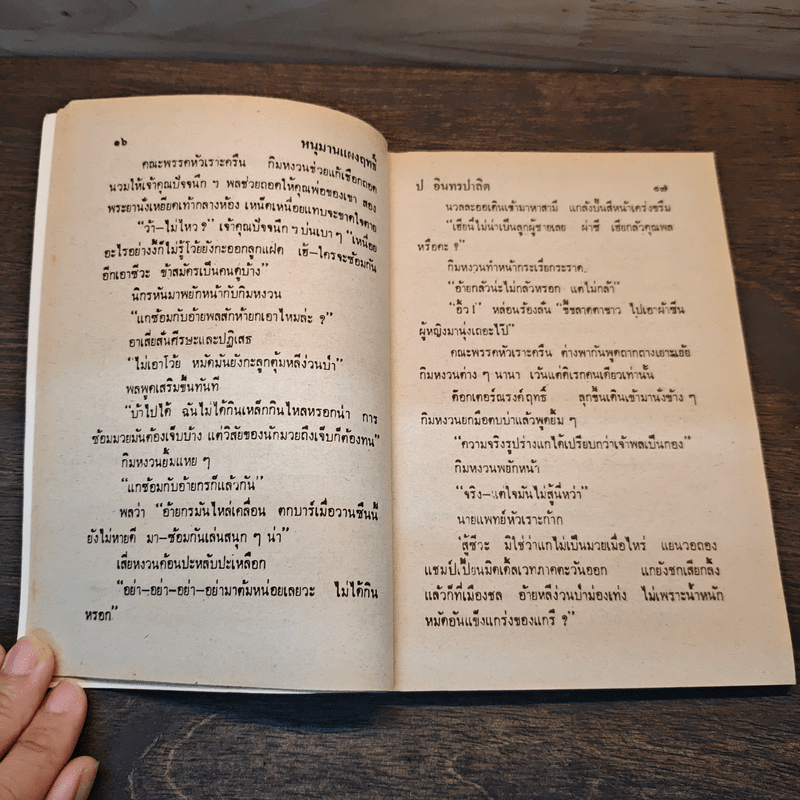 ๑๖ หนุมานแผงฤทธิ์
คณะพรรคหัวเราะครืน กิมหงวนช่วยแก้เชือกถอด
นวมให้เจ้าคุณปัจจนึก ฯ พลช่วยถอดให้คุณพ่อของเขา สอง
พระยานั่งเหยียดเท้ากลางห้อง เหน็ดเหนื่อยแทบจะขาดใจตาย
"ว้า–ไม่ไหว ?" เจ้าคุณปัจจนึก ฯ บ่นเบา ๆ "เหนื่อย
อะไรอย่างงี้ก็ไม่รู้โว้ยยังกะออกลูกแฝด เฮ้–ใครจะซ้อมกัน
อีกเอาซีวะ ข้าสมัครเป็นคนดูบ้าง"
นิกรหันมาพยักหน้ากับกิมหงวน
"แกซ้อมกับอ้ายพลสักห้ายกเอาไหมล่ะ ?"
อาเสี่ยสั่นศีรษะและปฏิเสธ
"ไม่เอาโว้ย หมัดมันยังกะลูกตุ้มหลีง่วนป๋า"
พลพูดเสริมขึ้นทันที
"บ้าไปได้ ฉันไม่ได้กินเหล็กกินไหลหรอกน่า การ
ซ้อมมวยมันต้องเจ็บบ้าง แต่วิสัยของนักมวยถึงเจ็บก็ต้องทน"
กิมหงวนยิ้มแหย ๆ
"แกซ้อมกับอ้ายกรก็แล้วกัน"
พลว่า "อ้ายกรมันไหล่เคลื่อน ตกบาร์เมื่อวานซืนนี้
ยังไม่หายดี มา–ซ้อมกันเล่นสนุก ๆ น่า"
เสี่ยหงวนค้อนปะหลับปะเหลือก
"อย่า–อย่า–อย่า–อย่ามาต้มหน่อยเลยวะ ไม่ได้กิน
หรอก"
ป อินทรปาลิต ๑๗
นวลละออเดินเข้ามาหาสามี แกล้งปั้นสีหน้าเคร่งขรึม
"เฮียนี่ไม่น่าเป็นลูกผู้ชายเลย ผ่าซี เฮียกลัวคุณพล
หรือคะ ?"
กิมหงวนทำหน้ากระเรี่ยกระราด
"อ้ายกลัวน่ะไม่กลัวหรอก แต่ไม่กล้า"
"อิ๊ว !" หล่อนร้องลั่น "ขี้ขลาดตาขาว ไปเอาผ้าซิ่น
ผู้หญิงมานุ่งเถอะไป๊"
คณะพรรคหัวเราะครืน ต่างพากันพูดถากถางเยาะเย้ย
กิมหงวนต่าง ๆ นานา เว้นแต่ดิเรกคนเดียวเท่านั้น
ด๊อกเตอร์ณรงค์ฤทธิ์ ลุกขึ้นเดินเข้ามานั่งข้าง ๆ
กิมหงวนยกมือตบบ่าแล้วพูดยิ้ม ๆ
"ความจริงรูปร่างแกได้เปรียบกว่าเจ้าพลเป็นกอง"
กิมหงวนพยักหน้า
"จริง–แต่ใจมันไม่สู้นี่หว่า"
นายแพทย์หัวเราะก้าก
"สู้ซีวะ มิใช่ว่าแกไม่เป็นมวยเมื่อไหร่ แยนวอถอง
แชมป์เปี้ยนมิดเดิ้ลเวทภาคตะวันออก แกยังชกเสียกลิ้ง
แล้วก็ที่เมืองชล อ้ายหลีง่วนป๋าม่องเท่ง ไม่เพราะน้ำหนัก
หมัดอันแข็งแกร่งของแกรึ ?"